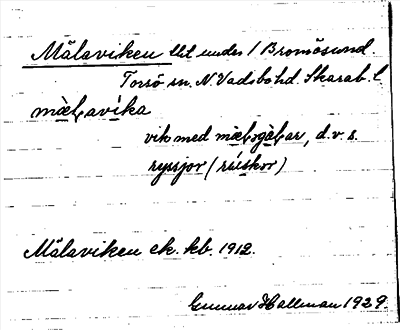 Mälaviken lht under 1 Bromösund
Torsö sn. N. Vadsbo hd. Skarab. l
mæ̀ɫavìka
vik med mæ̀ɫogàɫar, d. v. s.
ryssjor (rúskor)
Mälaviken ek. kb. 1912.
Gunnar Hallman 1929.